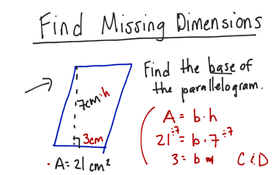 Find Missing Dimensions
Find the base of
the parallelogram.
7cm h
3cm
A = 21 cm²
A = b · h
21 ÷7 = b · 7 ÷7
3 = b